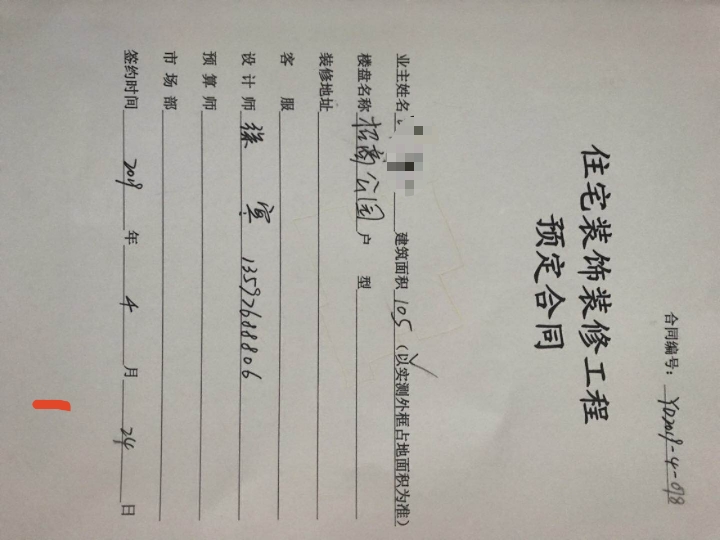 合同编号：YD2019-4-098
住宅装饰装修工程
预定合同
业主姓名 建筑面积 105（以实测外框占地面积为准）
楼盘名称 招商公园 户型
装修地址
客服
设计师 徐 宾 13597688806
预算师
市场部
签约时间 2019 年 4 月 24 日